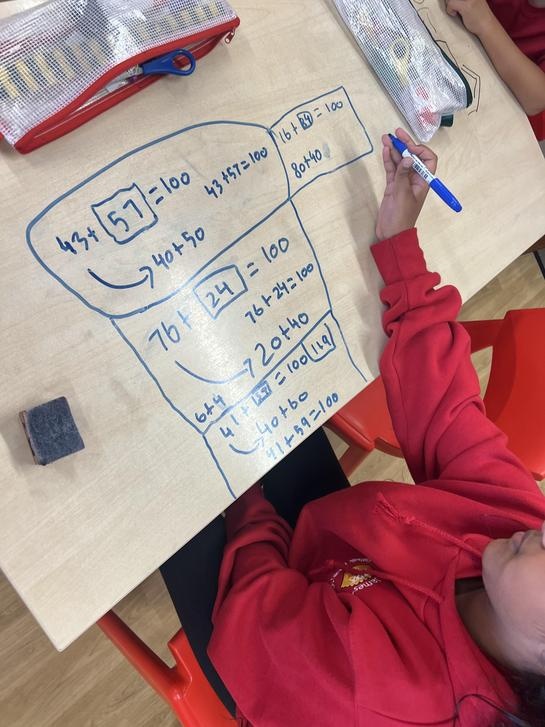 43+ 57 =100
43+57=100
40+50
16+ 24 = 100
80+40
76+ 24 = 100
76+24=100
20+40
6+4
41+ = 100
40+60
41+59=100